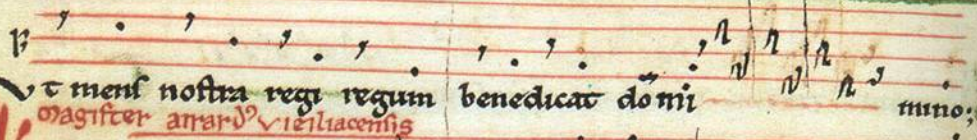 Ut mens nostra regi regum benedicat domi mino;
Magister airardus viziliacensis